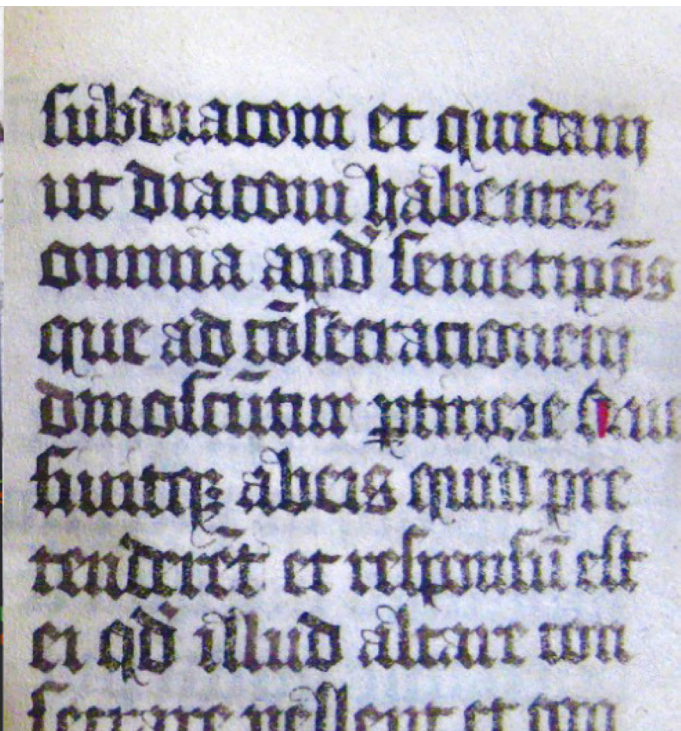 subdiaconi et quidam
ut diaconi habentes
omnia apud semetipōs
que ad cōsecrationem
dinoscūtur ꝑtinere
ab eis quid pre
tenderēt et responsū est
ei qd̄ illud altare con
secrare vellent et con